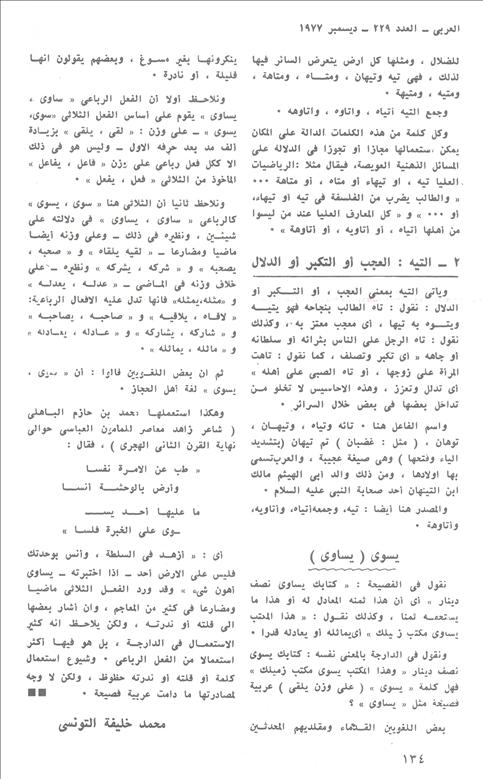 العربي ــ العدد ٢٢٩ ــ ديسمبر ١٩٧٧
للضلال ، ومثلها كل ارض يتعرض السائر فيها
لذلك ، فهي تيه وتيهان ، ومتــاه ، ومتاهة ،
ومتيه ، ومتيهة •
وجمع التيه أتياه ، وأتاوه ، وأتاويه •
وكل كلمة من هذه الكلمات الدالة على المكان
يمكن استعمالها مجازا أو تجوزا في الدلالة على
المسائل الذهنية العويصة، فيقال مثلا :الرياضيات
العليا تيه ، او تيهاء أو متاه ، أو متاهة •••
« والطالب يضرب من الفلسفة في تيه أو تيهاء،
أو ••• » و « كل المعارف العليا عند من ليسوا
من أهلها أتياه ، أو أتاويه ، أو أتاوهة » •
٢ ــ التيه : العجب أو التكبر أو الدلال
ويأتى التيه بمعنى العجب ، أو التكبر أو
الدلال : نقول : تاه الطالب بنجاحه فهو يتيــه
ويتــوه به تيها ، أى معجب معتز به ، وكذلك
نقول : تاه الرجل على الناس بثرائه أو سلطانه
أو جاهه « أى تكبر وتصلف ، كما نقول : تاهت
المرأة على زوجها ، أو تاه الصبي على أهله »
أى تدلل وتعزز ، وهذه الاحاسيس لا تخلو مـن
تداخل بعضها في بعض خلال السرائر •
واسم الفاعل هنا • تائه وتياه ، وتيهـان ،
توهان ، ( مثل : غضبان ) ثم تيهان (بتشديد
الياء وفتحها ) وهى صيغة عجيبة ، والعرب تسمى
بها اولادها ، ومن ذلك والد أبى الهيثم مالك
ابن التيهان أحد صحابة النبى عليه السلام •
والمصدر هنا أيضا : تيه، وجمعه أتياه، وأتاويه،
وأتاوهة •
يسوى ( يساوى )
نقول في الفصيحة : « كتابك يساوى نصف
دينار » أى أن هذا ثمنه المعادل له أو هذا ما
يستحقه ثمنا ، وكذلك نقــول : « هذا المكتب
يساوى مكتب زميلك » أى يماثله أو يعادله قدرا •
ونقول في الدارجة بالمعنى نفسه : كتابك يسوى
نصف دينار « وهذا المكتب يسوى مكتب زميلك »
فهل كلمة « يسوى » ( على وزن يلقى ) عربية
فصيحة مثل « يساوى » ؟
بعض اللغويين القدماء ومقلديهم المحدثين
ينكرونها بغير مسوغ ، وبعضهم يقولون انهـا
قليلة ، أو نادرة •
ونلاحظ أولا أن الفعل الرباعى « ساوى ،
يساوى » يقوم على أساس الفعل الثلاثى «سوى،
يسوى » ــ على وزن : « لقى ، يلقى » بزيادة
ألف مد بعد حرفه الاول ــ وليس هو في ذلك
الا ككل فعل رباعى على وزن « فاعل ، يفاعل »
الماخوذ من الثلاثي « فعل ، يفعل » •
ونلاحظ ثانيا أن الثلاثي هنا « سوى ، يسوى »
كالرباعى « ساوى ، يساوى » في دلالته على
شيئـين ، ونظيره في ذلك ــ وعلى وزنه أيضـا
ماضيا ومضارعا ــ « لقيه يلقاه » و « صحبه ،
يصحبه » و « شركه ، يشركه » ونظيره ــ على
خلاف وزنه في الماضى ــ « عدلـه ، يعدلـه »
و «مثله،يمثله» فانها تدل عليه الافعال الرباعية:
« لاقـاه ، يلاقيـه » و « صاحبـه ، يصاحبـه »
و « شاركه ، يشاركه » و « عادله ، يعادله »
و « ماثله ، يماثله » •
ثم ان بعض اللغويين قالوا : أن « سوى ،
يسوى » لغة أهل الحجاز •
وهكذا استعملهـا محمد بن حازم الباهلى
( شاعر زاهد معاصر للمأمون العباسى حوالى
نهاية القرن الثانى الهجرى ) ، فقال :
« طب عن الامرة نفسـا
وأرض بالوحشـة أنسـا
ما عليهـا أحـد يســـ
ــوى على الخبرة فلسا »
أى : « ازهـد في السلطة ، وأنس بوحدتك
فليس على الارض أحد ــ اذا اختبرته ــ يساوى
أهون شىء » وقد ورد الفعل الثلاثى ماضيـا
ومضارعا في كثير من المعاجم ، وان أشار بعضها
الى قلته أو ندرته ، ولكن يلاحظ انه كثير
الاستعمـال في الدارجة ، بل هو فيها أكثر
استعمالا من الفعل الرباعى • وشيوع استعمال
كلمة أو قلته أو ندرته حظوظ ، ولكن لا وجه
لمصادرتها ما دامت عربية فصيحة •
محمد خليفة التونسى
١٣٤